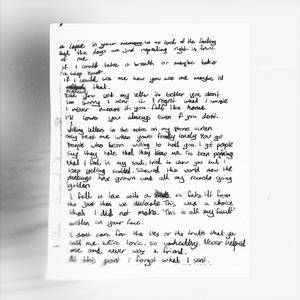 a lapse in your memory is no level of the feeling
that the days are just repeating right in front
of me.
if I could take a breath or maybe take
a step back.
if I could see me how you see me maybe I'd
that.
did you get my letter its better you dont
Im sorry I sent it. I regret what I wrote
I never meant it you call this home.
I'll cover you always even if you dont.
Writing letters in the notes on my phones screen
only text me when youre finally lonely You got
people who being willing to hold you. I got people
say they hate that they knew me. I've been
that I feel in my soul, tried to show you but I
keep getting scolded. Should've had until now the
message has grown cold all my records going
golden
I fell in love with a so fake I'd from
the start then we dislocate. This was a choice
that I did not make. This is all my fault
written on your face.
I dont care for the lies or the truth that you
sell me. We're toxic, so unhealthy. Never helped
me and never was a friend.
At this point I forgot what I sent.